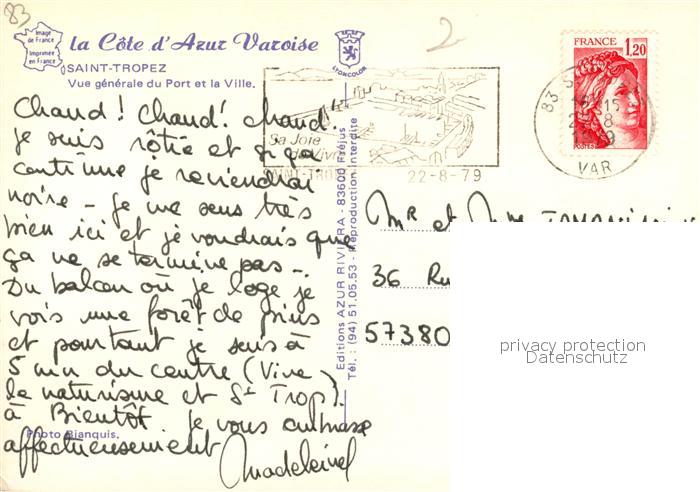 83
Image
de France
Imprimée
en France
la Côte d'Azur Varoise
SAINT-TROPEZ
Vue générale du Port et la Ville.
LYONCOLOR
2
FRANCE
1,20
POSTES
83 S
15
8
VAR
Sa Joie
de Vivre
SAINT-TROPEZ 22-8-79
Chaud! Chaud! Chaud!
je suis rôtie et si ça
continue je reviendrai
noire - je me sens très
bien ici et je voudrais que
ça ne se termine pas -
Du balcon où je loge je
vois une forêt de pins
et pourtant je suis à
5 mn du centre (Vive
le naturisme et St Trop).
à Bientôt je vous embrasse
affectueusement
Madeleine
Photo Bianquis.
Editions AZUR RIVIERA - 83600 Fréjus
Tél. : (94) 51.05.53 - Reproduction interdite
Mr et Mme
36 Ru
57380
privacy protection
Datenschutz